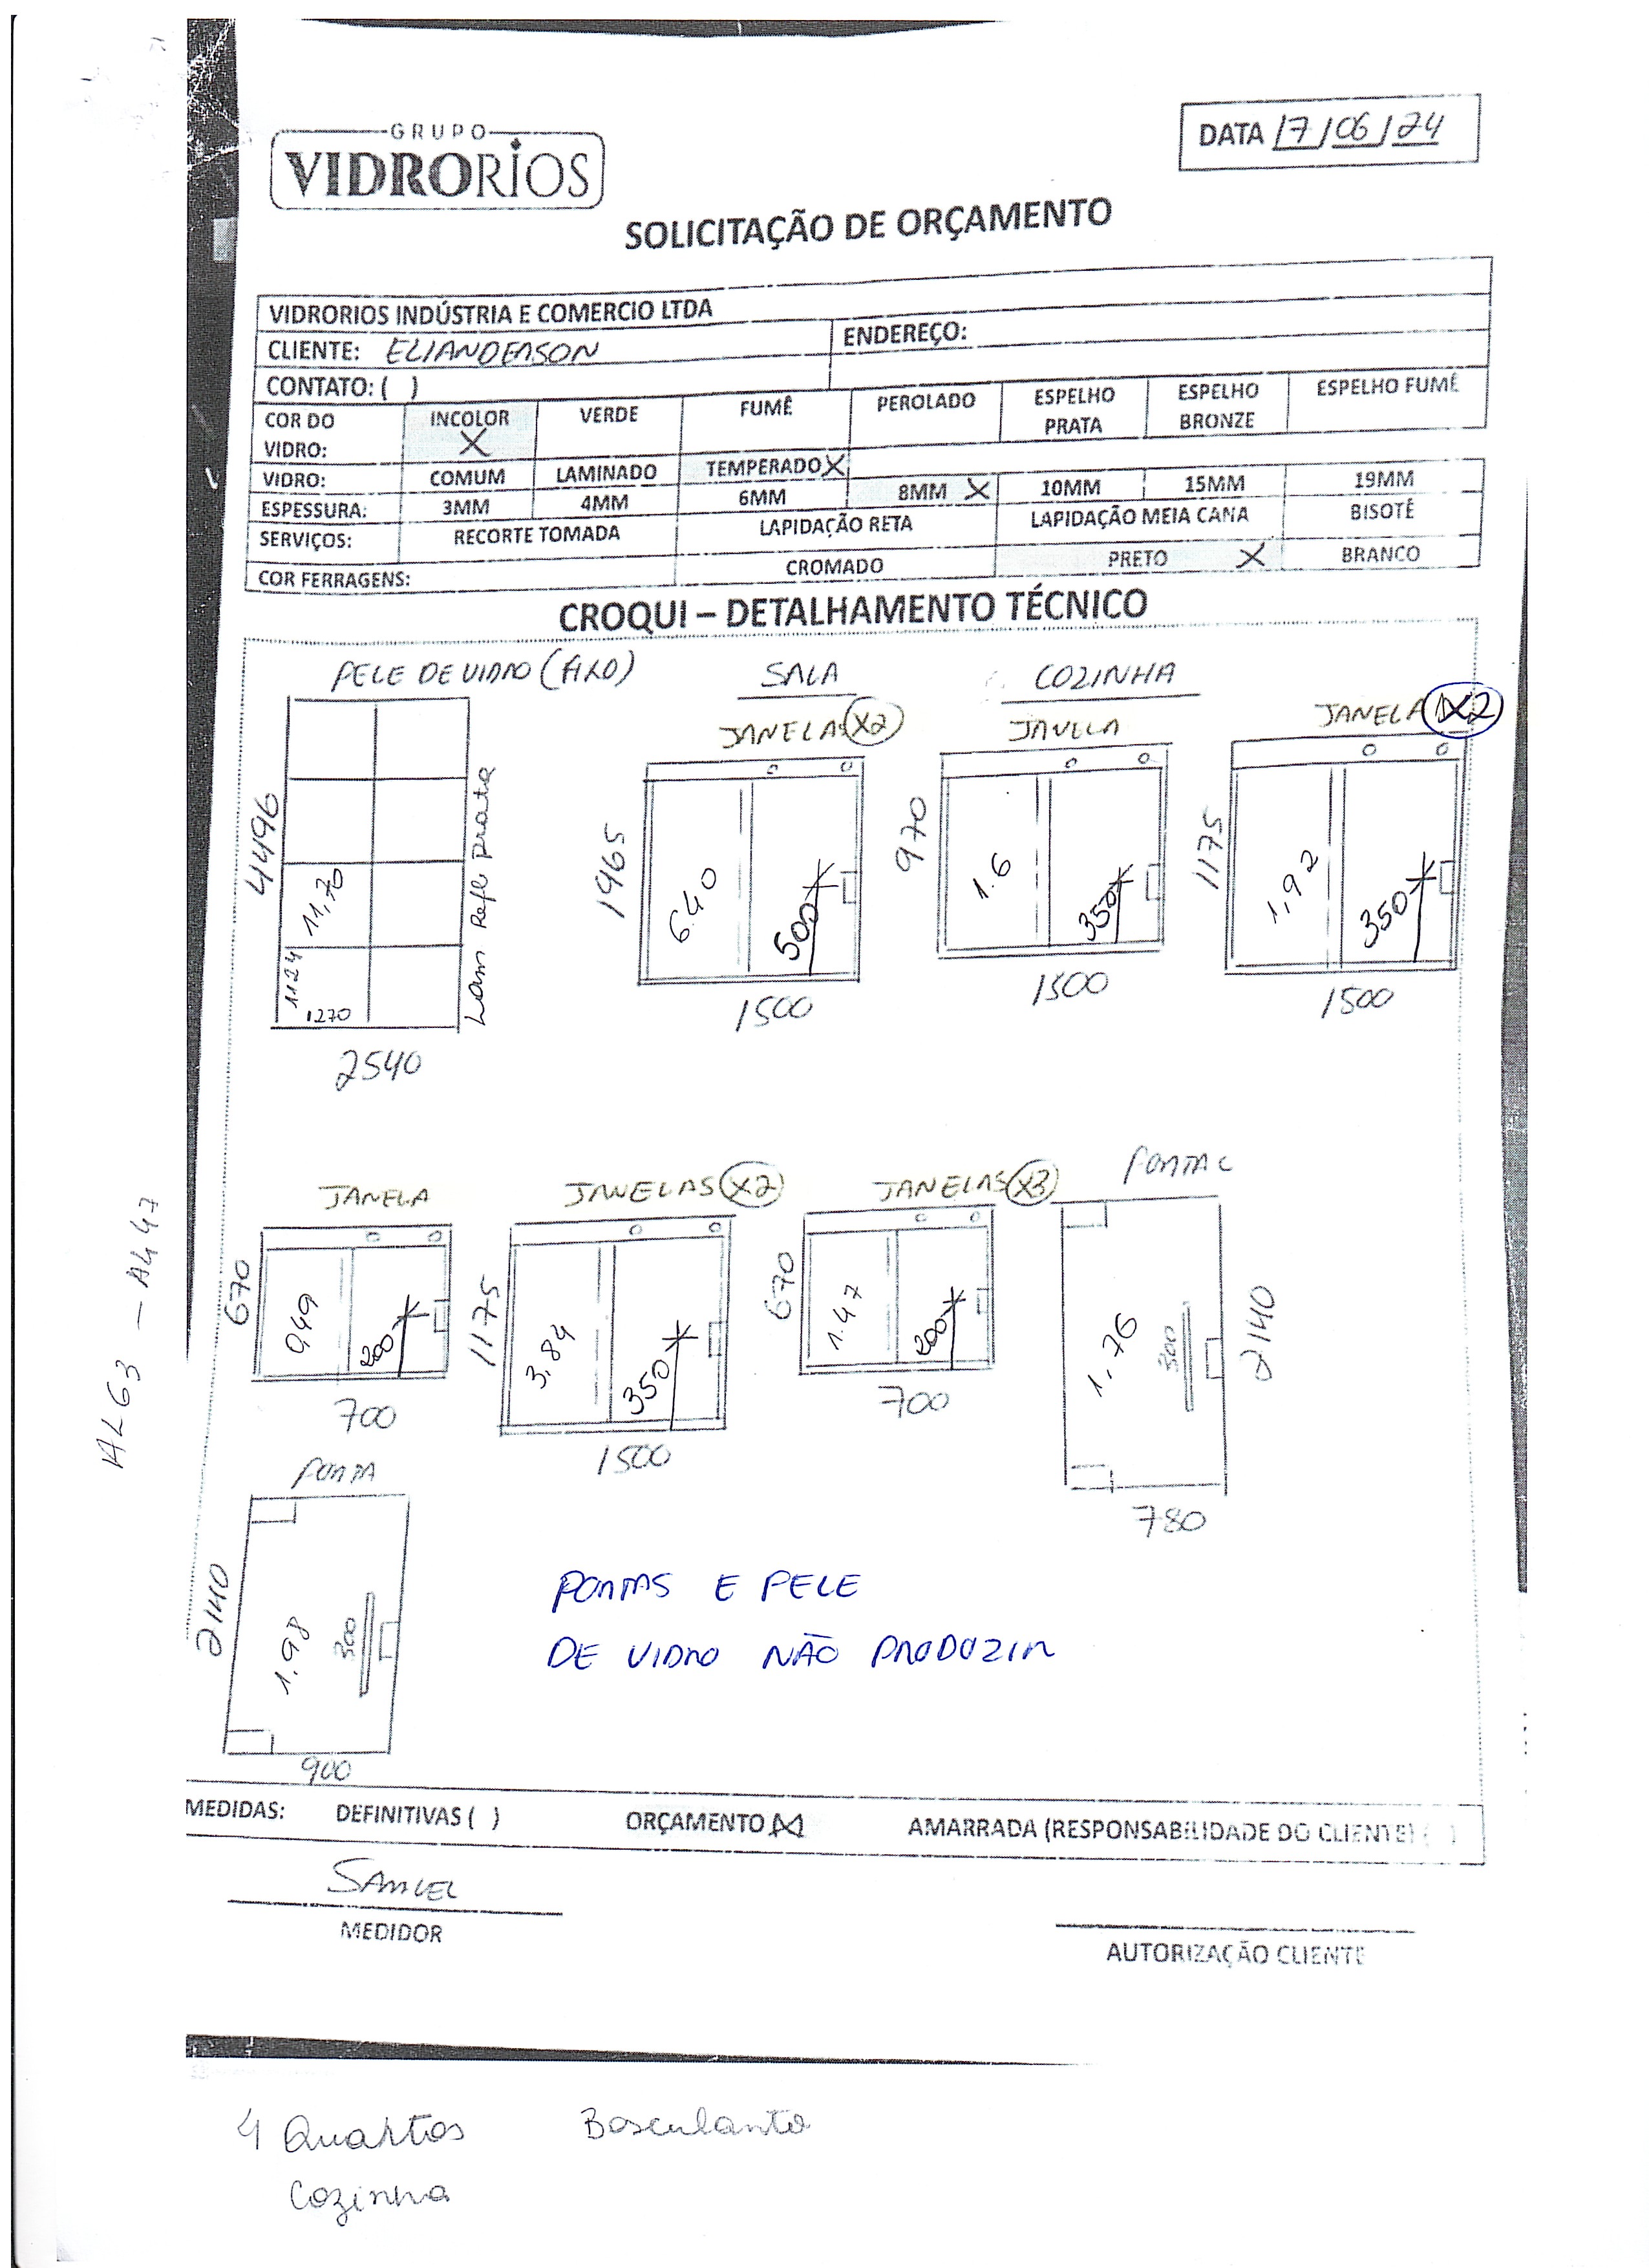 GRUPO
VIDRORIOS
DATA 17/06/24
SOLICITAÇÃO DE ORÇAMENTO
VIDRORIOS INDÚSTRIA E COMERCIO LTDA
CLIENTE: ELIANDERSON ENDEREÇO:
CONTATO: ( )
COR DO VIDRO: INCOLOR X VERDE FUMÊ PEROLADO ESPELHO PRATA ESPELHO BRONZE ESPELHO FUMÊ
VIDRO: COMUM LAMINADO TEMPERADO X
ESPESSURA: 3MM 4MM 6MM 8MM X 10MM 15MM 19MM
SERVIÇOS: RECORTE TOMADA LAPIDAÇÃO RETA LAPIDAÇÃO MEIA CANA BISOTÊ
COR FERRAGENS: CROMADO PRETO X BRANCO
CROQUI – DETALHAMENTO TÉCNICO
PELE DE VIDRO (FIXO)
4496
11,70
1124
1270
2540
Lam Refl Prata
SALA
JANELAS X2
1965
6.40
500
1500
COZINHA
JANELA
970
1.6
350
1500
JANELA X2
1175
1,92
350
1500
JANELA
670
0,49
200
700
JANELAS X2
1175
3,84
350
1500
JANELAS X3
670
1.47
200
700
PORTA
1,76
300
2140
780
PORTA
2140
1.98
300
900
PORTAS E PELE
DE VIDRO NÃO PRODUZIR
MEDIDAS: DEFINITIVAS ( ) ORÇAMENTO (X) AMARRADA (RESPONSABILIDADE DO CLIENTE) ( )
SAMUEL
MEDIDOR
AUTORIZAÇÃO CLIENTE
4 Quartos Basculante
Cozinha